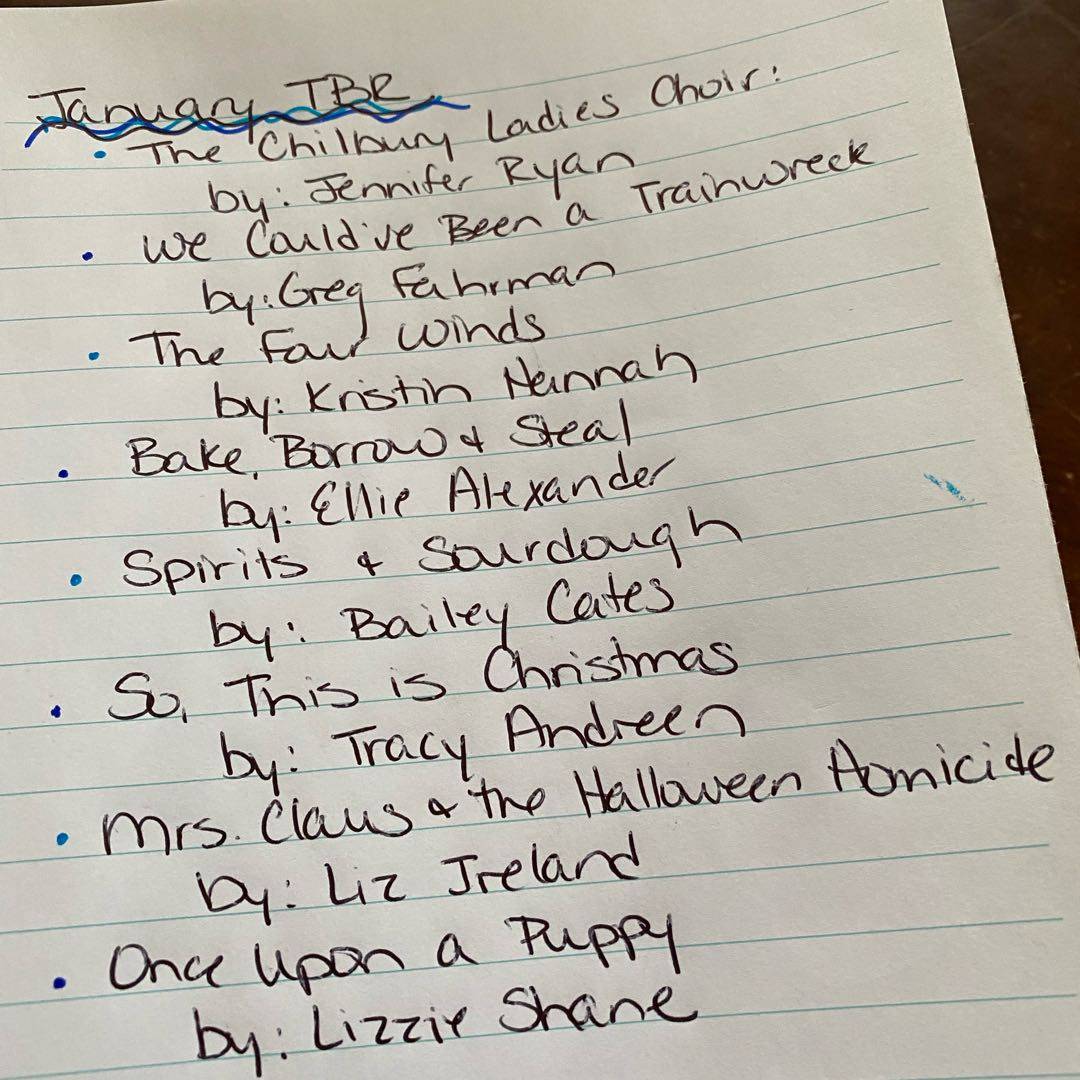 January TBR
• The Chilbury Ladies Choir:
by: Jennifer Ryan
• We Could've Been a Trainwreck
by: Greg Fahrman
• The Four Winds
by: Kristin Hannah
• Bake, Borrow & Steal
by: Ellie Alexander
• Spirits & Sourdough
by: Bailey Cates
• So, This is Christmas
by: Tracy Andreen
• Mrs. Claus & the Halloween Homicide
by: Liz Ireland
• Once Upon a Puppy
by: Lizzie Shane